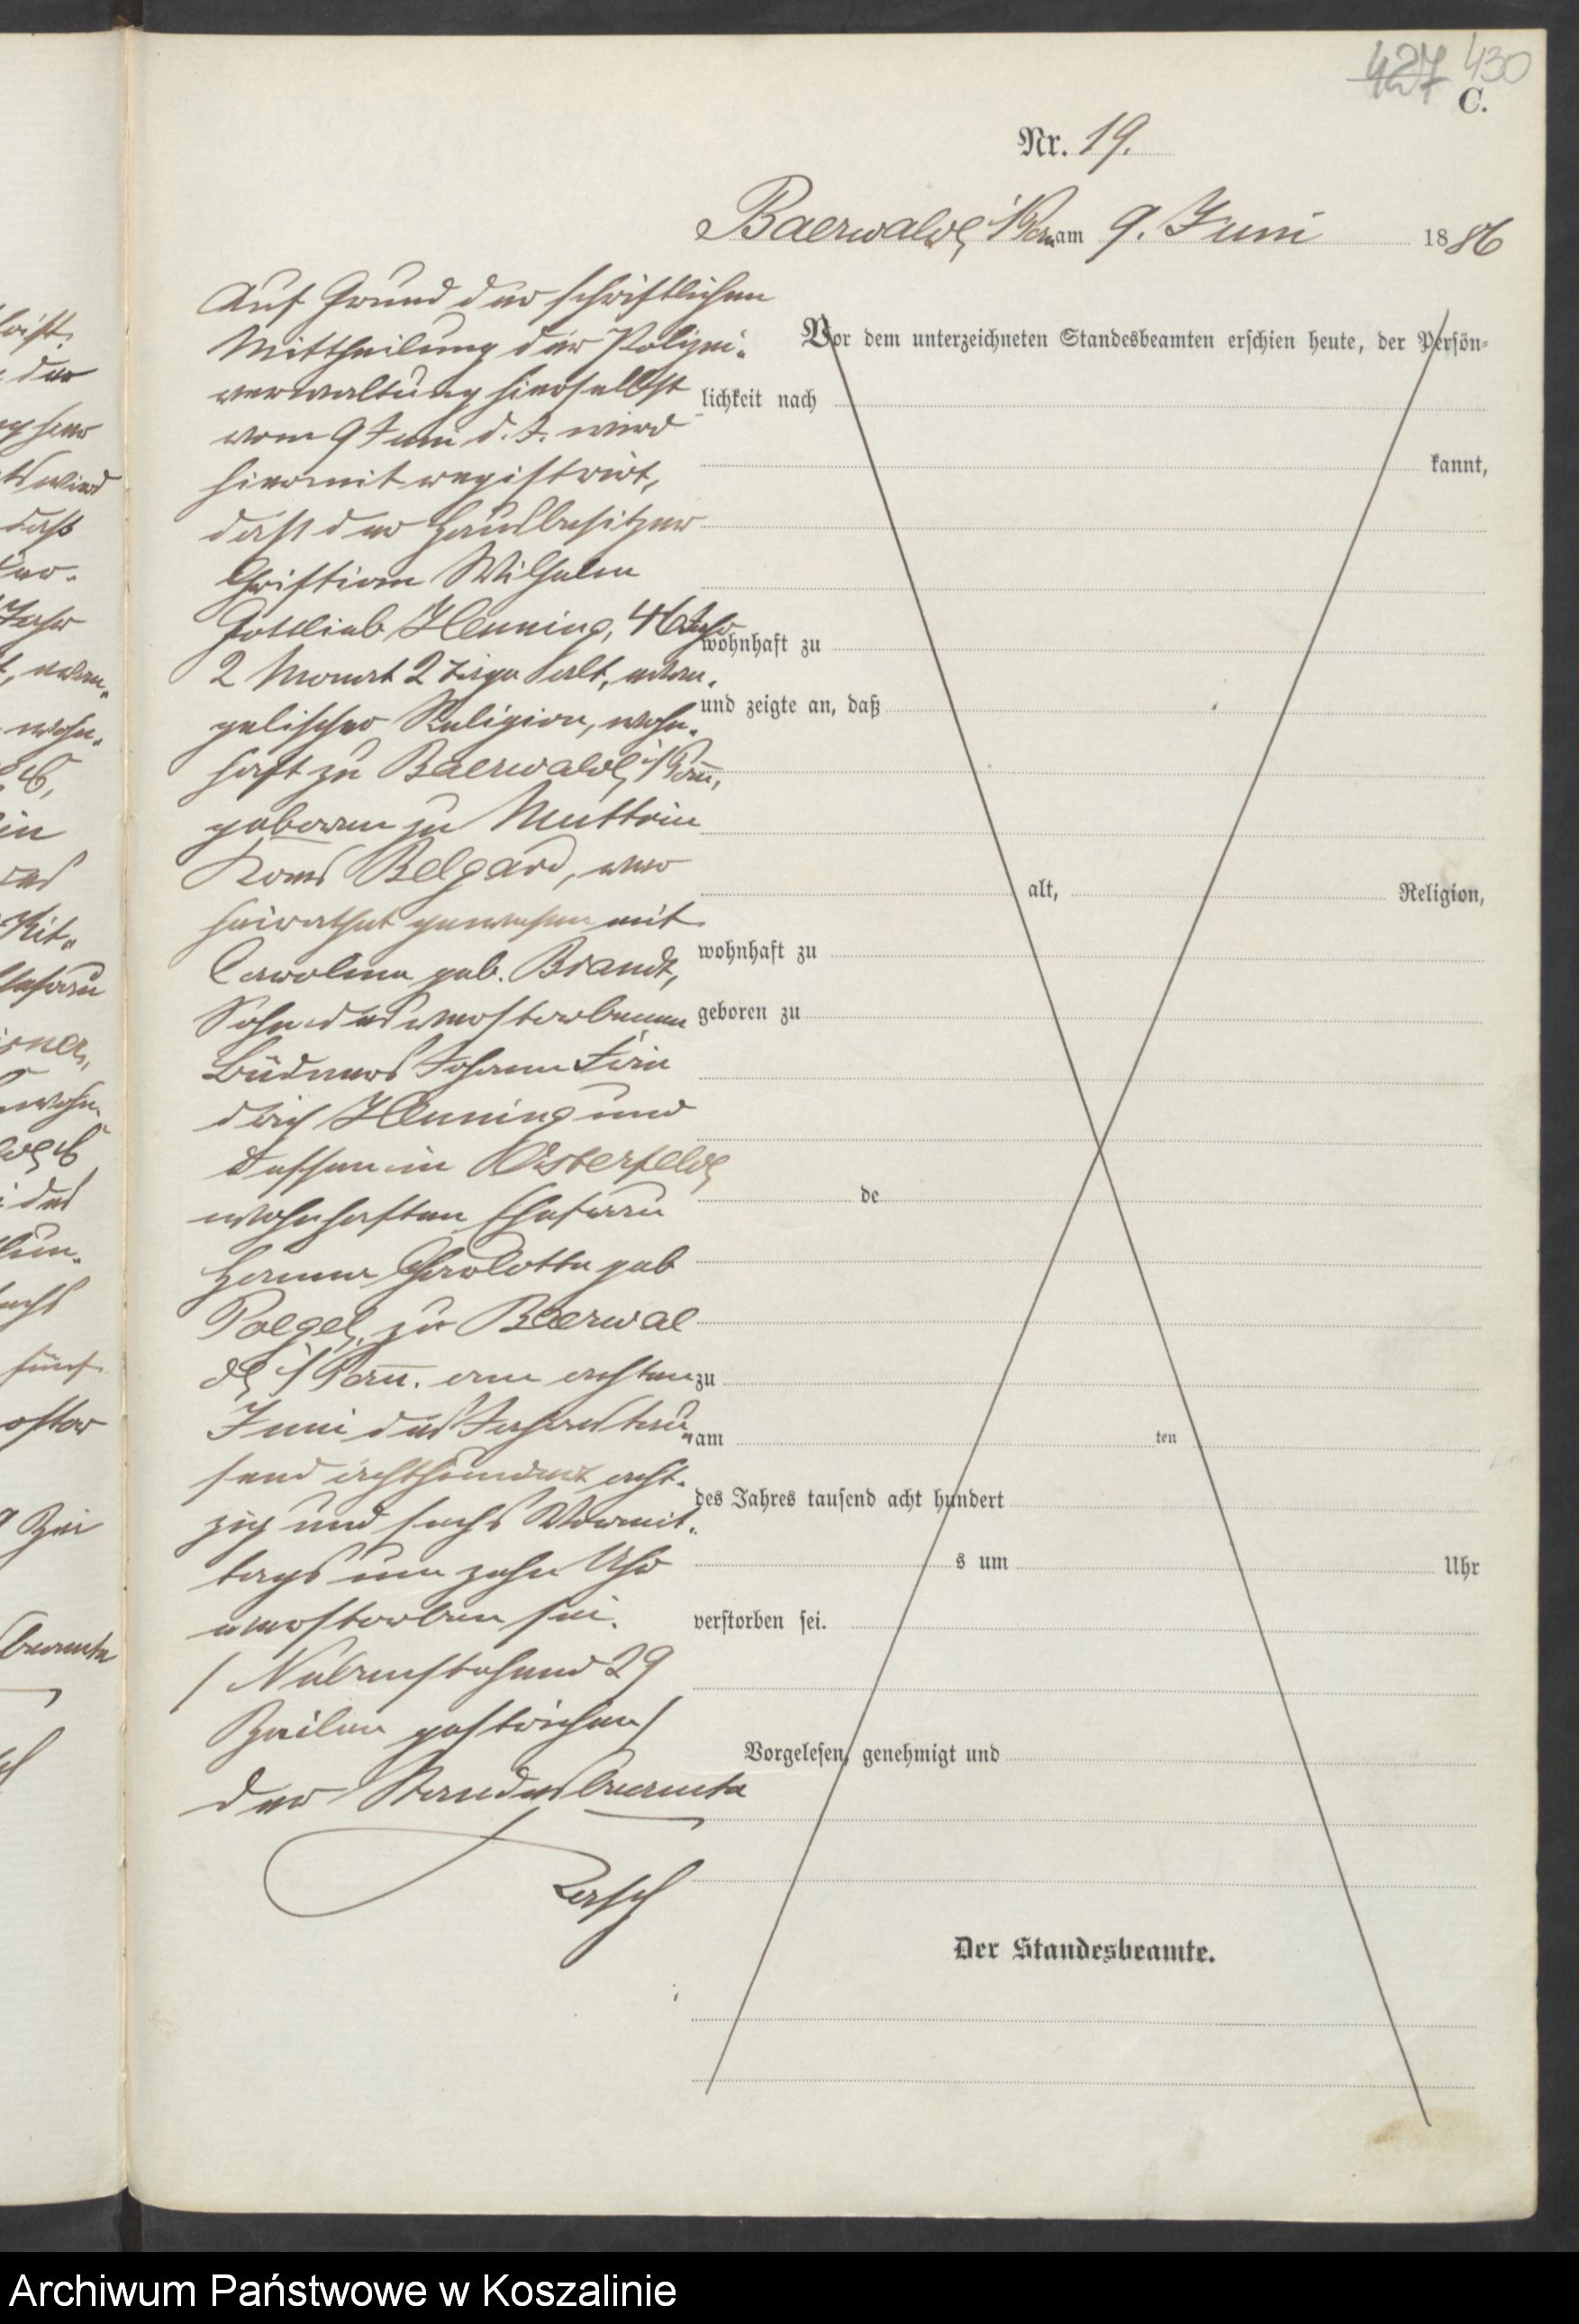 427 430
C.
Nr. 19.
Baerwalde i/Pom am 9. Juni 1886
Auf Grund der schriftlichen
Mittheilung der Polizei-
verwaltung hierselbst
vom 9 Juni d. J. wird
hiermit registrirt,
daß der Hausbesitzer
Christian Wilhelm
Gottlieb Henning, 46 Jahr
2 Monat 2 Tage alt, evan-
gelischer Religion, wohn-
haft zu Baerwalde i/Pom,
geboren zu Muttrin
Kreis Belgard, ver
heirathet gewesen mit
Caroline geb. Brandt,
Sohn des verstorbenen
Büdners Johann Frie
drich Henning und
dessen in Osterfelde
wohnhaften Ehefrau
Hanne Charlotte geb
Poegel, zu Baerwal
de i/Pom. am achten
Juni des Jahres tau-
send achthundert acht-
zig und sechs Vormit-
tags um zehn Uhr
verstorben sei.
/ Nebenstehend 29
Zeilen gestrichen /
Der Standesbeamte
Vor dem unterzeichneten Standesbeamten erschien heute, der Persön-
lichkeit nach
kannt,
wohnhaft zu
und zeigte an, daß
alt, Religion,
wohnhaft zu
geboren zu
de
zu
am ten
des Jahres tausend acht hundert
s um Uhr
verstorben sei.
Vorgelesen, genehmigt und
Der Standesbeamte.
Archiwum Państwowe w Koszalinie